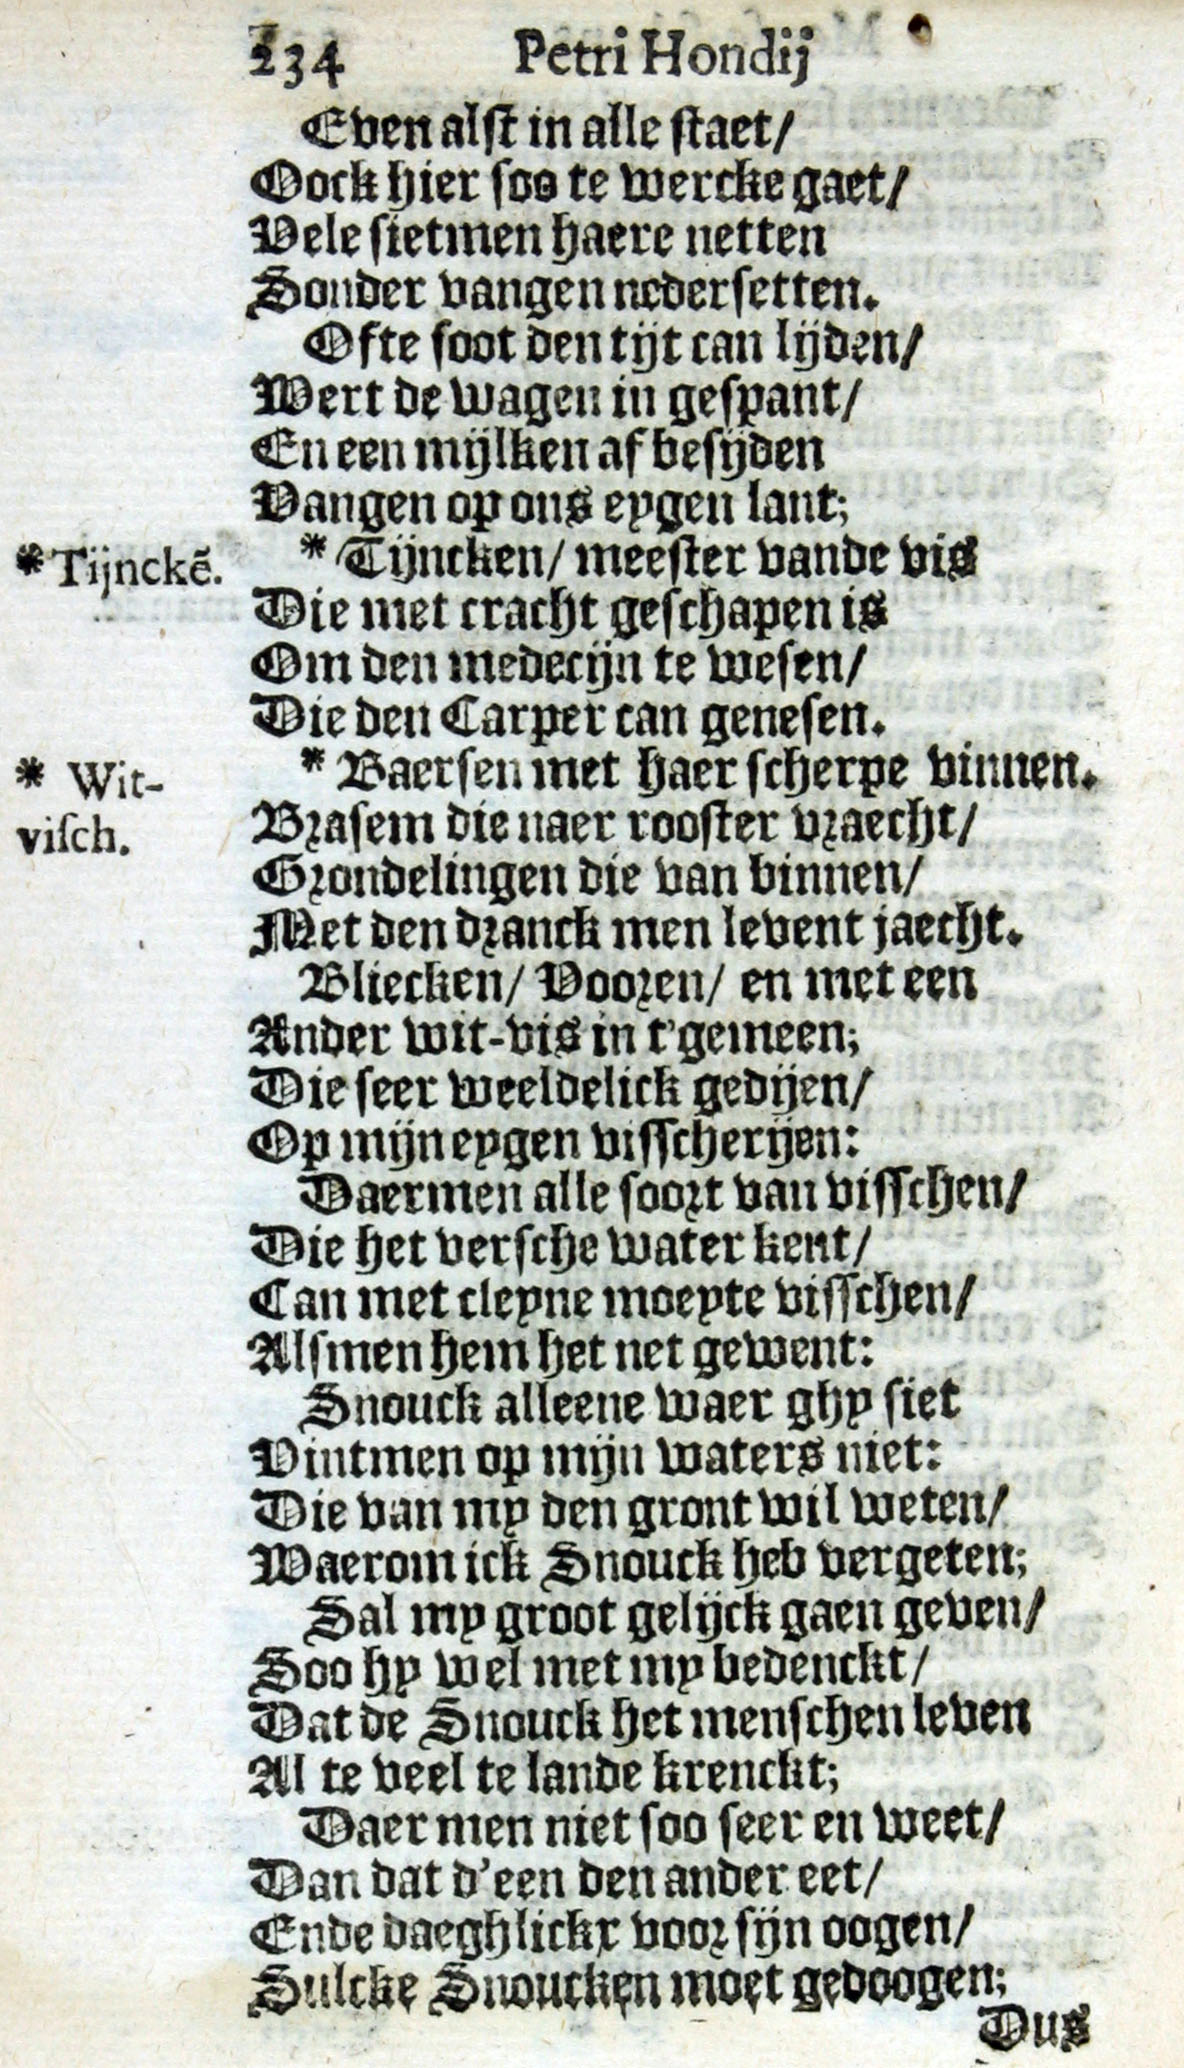 234 Petri Hondij
Even alst in alle staet/
Oock hier soo te wercke gaet/
Vele sietmen haere netten
Sonder vangen nedersetten.
Ofte soot den tijt can lijden/
Wert de wagen in gespant/
En een mijlken af besijden
Vangen op ons eygen lant;
*Tijnckē.
* Tijncken/ meester vande vis
Die met cracht geschapen is
Om den medecijn te wesen/
Die den Carper can genesen.
* Wit-
visch.
* Baersen met haer scherpe vinnen.
Brasem die naer rooster vraecht/
Grondelingen die van binnen/
Met den dranck men levent jaecht.
Bliecken/ Vooren/ en met een
Ander wit-vis in t'gemeen;
Die seer weeldelick gedijen/
Op mijn eygen visscherijen:
Daermen alle soort van visschen/
Die het versche water kent/
Can met cleyne moeyte visschen/
Alsmen hem het net gewent:
Snouck alleene waer ghy siet
Vintmen op mijn waters niet:
Die van my den gront wil weten/
Waerom ick Snouck heb vergeten;
Sal my groot gelijck gaen geven/
Soo hy wel met my bedenckt/
Dat de Snouck het menschen leven
Al te veel te lande krenckt;
Daer men niet soo seer en weet/
Dan dat d'een den ander eet/
Ende daeghlickx voor sijn oogen/
Sulcke Snoucken moet gedoogen;
Dus